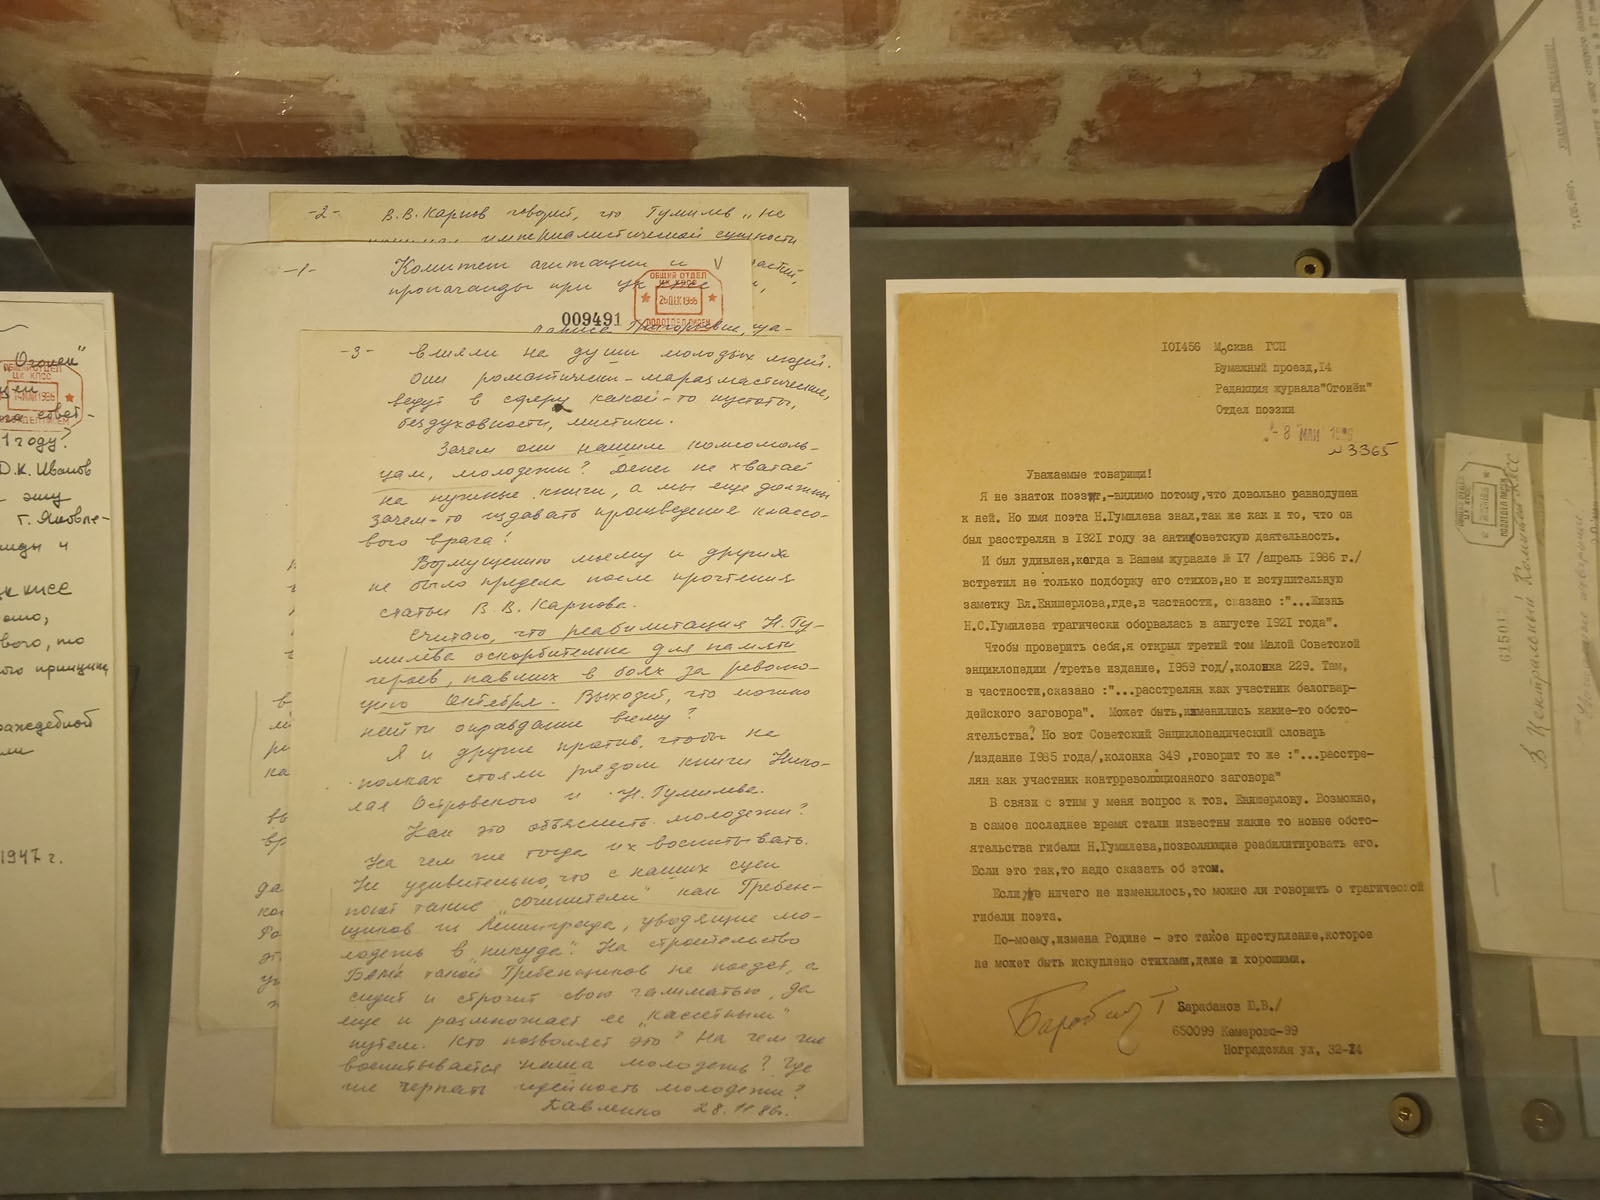 Огонек"
ОБЩИЙ ОТДЕЛ
ЦК КПСС
14 МАЙ 1986
1 году?
Ю.К. Иванов
эту
г. Яковле-
вого, то
ого принципа
раждебной
1947 г.
-2- В.В. Карпов говорит, что Гумилев „не
империалистической сущности
-1- Комитет агитации и V
пропаганды при ЦК КПСС
ОБЩИЙ ОТДЕЛ
ЦК КПСС
26 ДЕК 1986
ПОДОТДЕЛ ПИСЕМ
009491
-3- влияли на души молодых людей.
Они романтически-маразматические,
ведут в сферу какой-то пустоты,
бездуховности, мистики.
Зачем они нашим комсомоль-
цам, молодежи? Денег не хватает
на нужные книги, а мы еще должны
зачем-то издавать произведения классо-
вого врага!
Возмущению моему и других
не было предела после прочтения
статьи В.В. Карпова.
Считаю, что реабилитация Н. Гу-
милева оскорбительна для памяти
героев, павших в боях за револю-
цию Октября. Выходит, что можно
найти оправдание всему?
Я и другие против, чтобы на
полках стояли рядом книги Нико-
лая Островского и Н. Гумилева.
Как это объяснить молодежи?
На чем же тогда их воспитывать.
Не удивительно, что с наших сцен
поют такие „сочинители" как Гребен-
щиков из Ленинграда, уводящие мо-
лодежь в „никуда". На строительство
БАМа такой Гребенщиков не поедет, а
сидит и строчит свою галиматью, да
еще и размножает ее „кассетным"
путем. Кто позволяет это? На чем же
воспитывается наша молодежь? Где
же черпать идейность молодежи?
Павленко 28.11.86г.
101456 Москва ГСП
Бумажный проезд,14
Редакция журнала"Огонёк"
Отдел поэзии
- 8 МАЙ 1986
№ 3365
Уважаемые товарищи!
Я не знаток поэзии,-видимо потому,что довольно равнодушен
к ней. Но имя поэта Н.Гумилева знал,так же как и то, что он
был расстрелян в 1921 году за антисоветскую деятельность.
И был удивлен,когда в Вашем журнале № 17 /апрель 1986 г./
встретил не только подборку его стихов,но и вступительную
заметку Вл.Енишерлова,где,в частности, сказано :"...Жизнь
Н.С.Гумилева трагически оборвалась в августе 1921 года".
Чтобы проверить себя,я открыл третий том Малой Советской
энциклопедии /третье издание, 1959 год/,колонка 229. Там,
в частности,сказано :"...расстрелян как участник белогвар-
дейского заговора". Может быть,изменились какие-то обсто-
ятельства? Но вот Советский Энциклопедический словарь
/издание 1985 года/,колонка 349 ,говорит то же :"...расстре-
лян как участник контрреволюционного заговора"
В связи с этим у меня вопрос к тов. Енишерлову. Возможно,
в самое последнее время стали известны какие то новые обсто-
ятельства гибели Н.Гумилева,позволяющие реабилитировать его.
Если это так,то надо сказать об этом.
Если же ничего не изменилось,то можно ли говорить о трагической
гибели поэта.
По-моему,измена Родине - это такое преступление,которое
не может быть искуплено стихами,даже и хорошими.
Барабанов Ю.В./
650099 Кемерово-99
Ноградская ул, 32-14
В Центральный Комитет КПСС